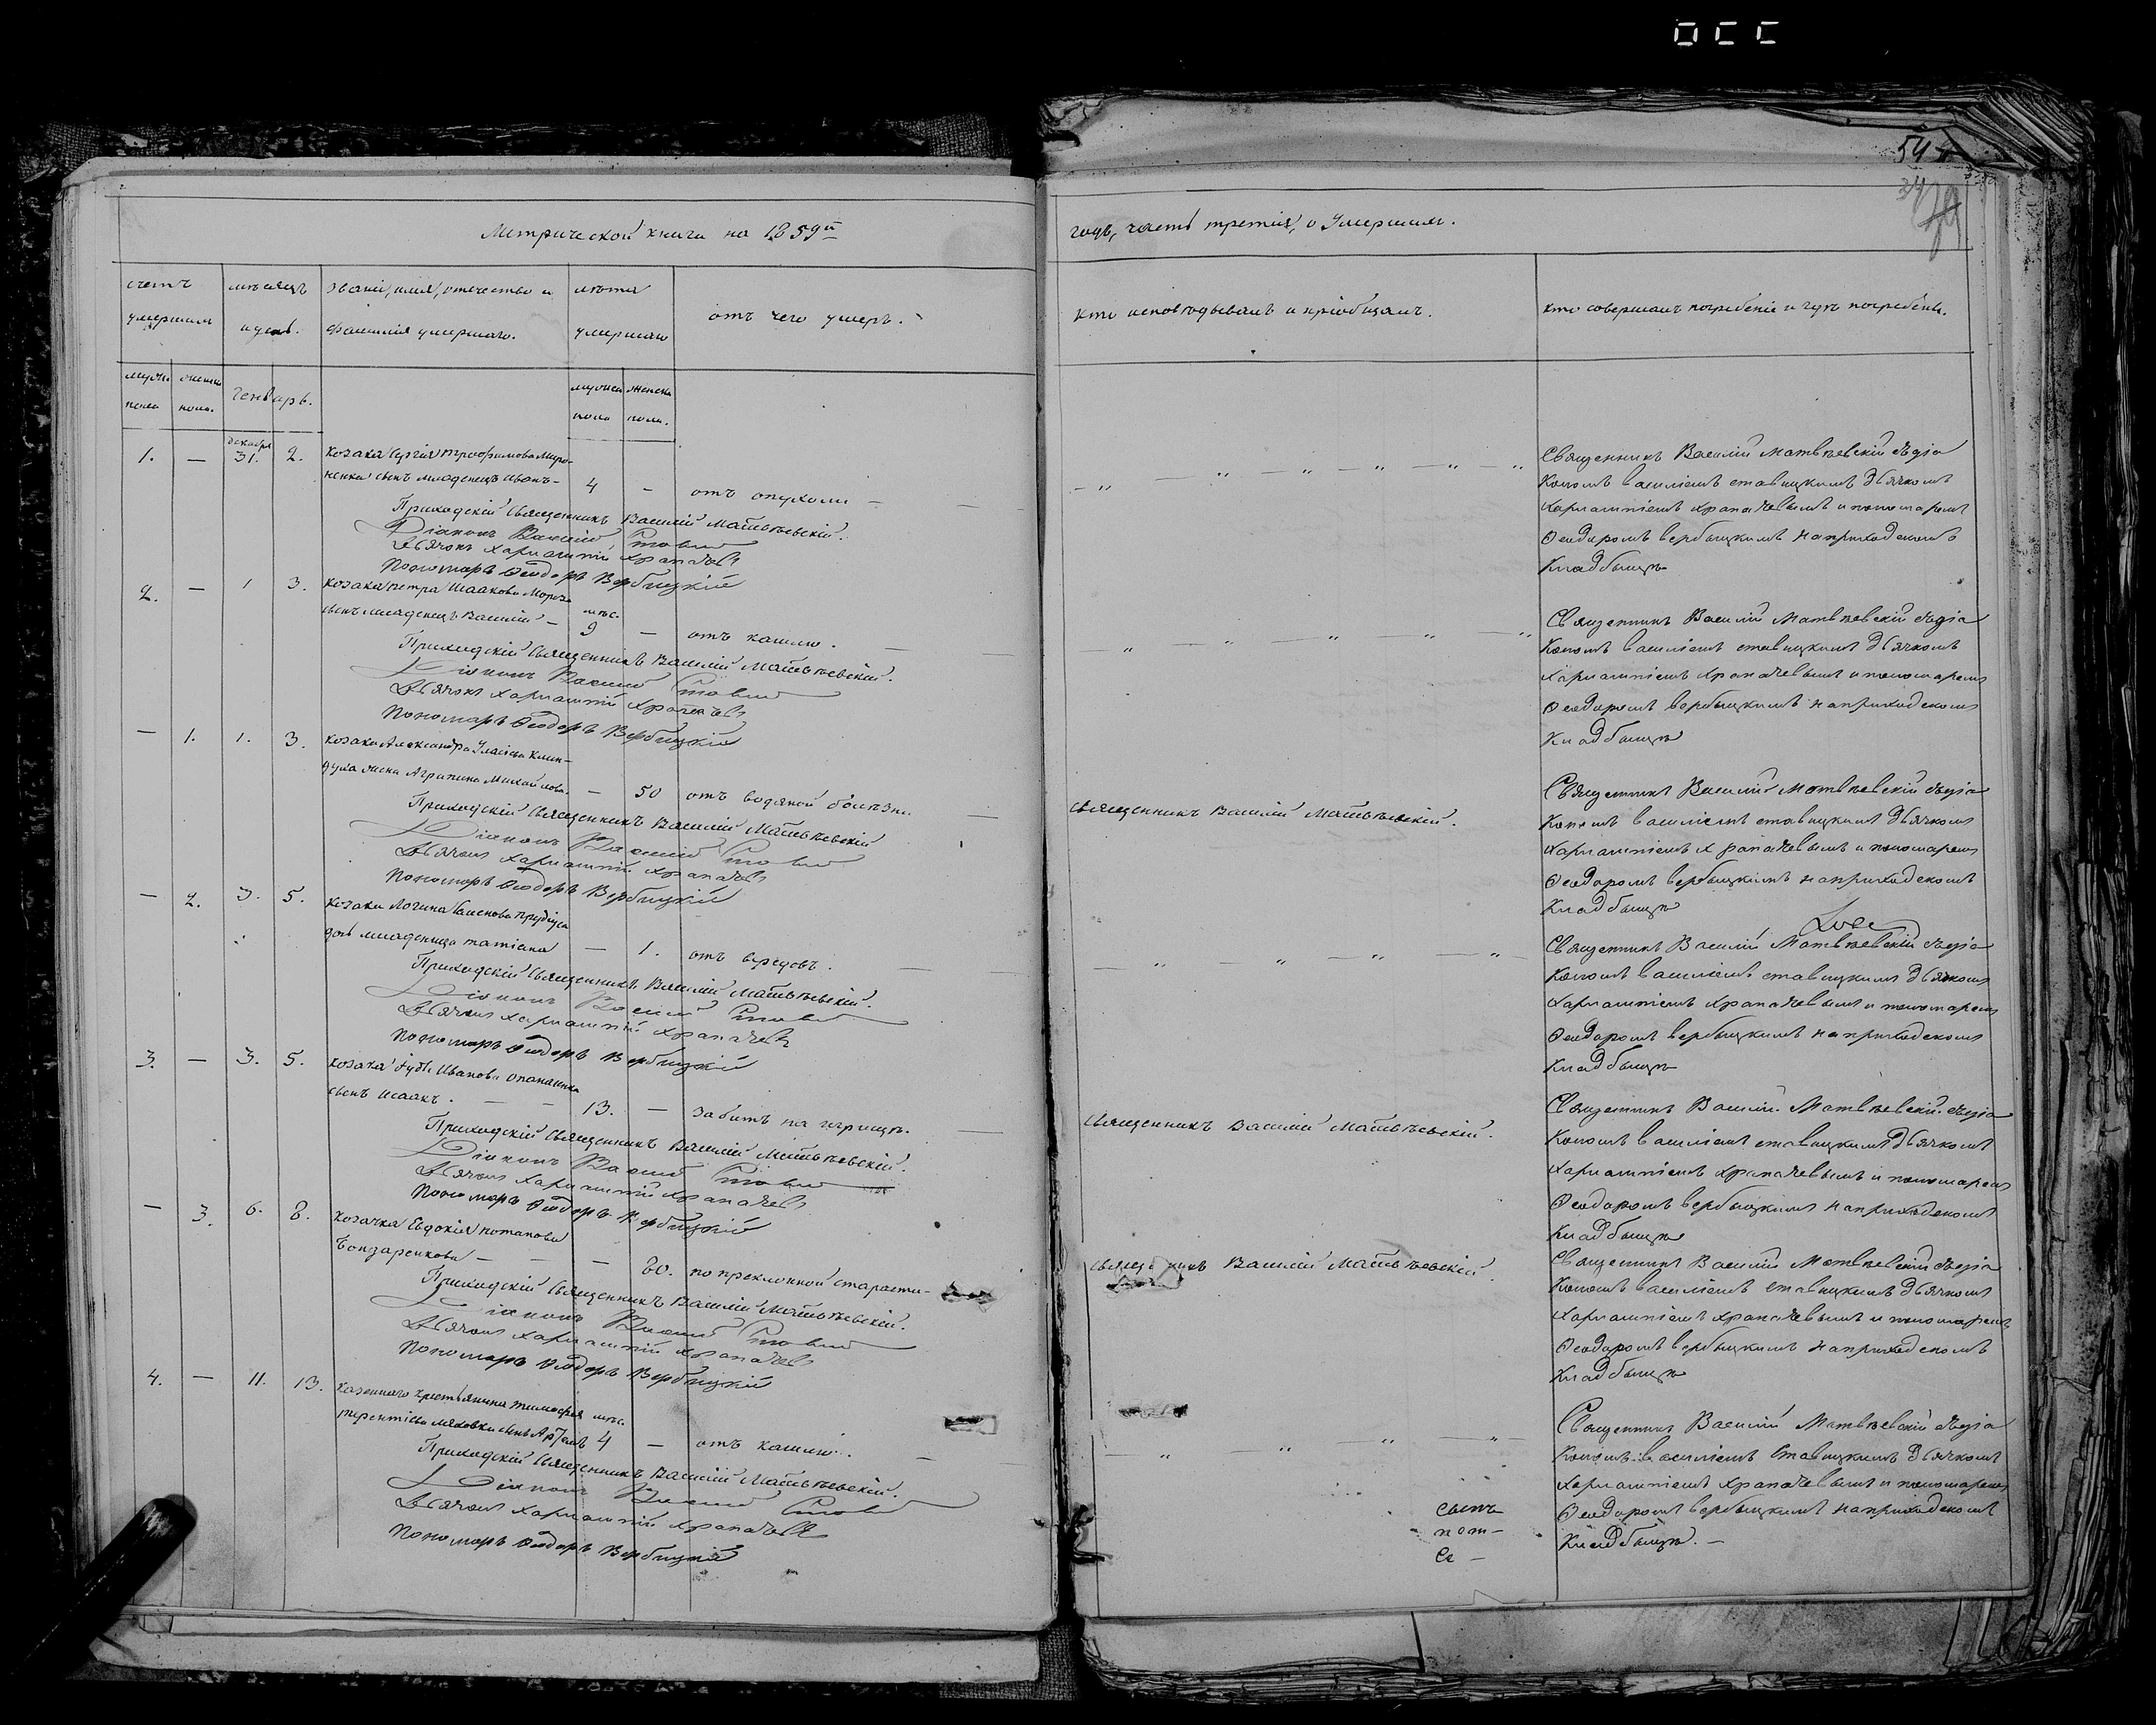 54
34
79
Метрической книги на 1859й
годъ, часть третія, о Умершихъ.
счетъ умершихъ
мѣсяцъ и день.
званіе, имя, отечество и фамилія умершаго.
лѣта умершаго
отъ чего умеръ.
кто исповѣдывалъ и пріобщалъ.
кто совершалъ погребеніе и гдѣ погребены.
мужс. пола
женск. пола.
Генварь.
мужеска пола
женска пола.
1. — декабря 31. 2. козака Сергія Трофимова Миро-
ненка сынъ младенецъ Иванъ — 4 — отъ опухоли —
Приходскій Священникъ Василій Матвѣевскій.
Діаконъ Василій
Дьячокъ Харлампій Храпачевъ
Пономарь Ѳеодоръ Вербицкій
Священникъ Василій Матвѣевскій съ діа
кономъ Василіемъ Ставицкимъ дьячкомъ
Харлампіемъ Храпачевымъ и пономаремъ
Ѳеодоромъ Вербицкимъ на приходскомъ
Кладбищѣ
2. — 1 3. козака Петра Исаакова Мороза
сынъ младенецъ Василій — мѣс. 9 — отъ кашлю.
Приходскій Священникъ Василій Матвѣевскій.
Діаконъ Василій
Дьячокъ Харлампій Храпачевъ
Пономарь Ѳеодоръ Вербицкій
Священникъ Василій Матвѣевскій съ діа
кономъ Василіемъ Ставицкимъ дьячкомъ
Харлампіемъ Храпачевымъ и пономаремъ
Ѳеодоромъ Вербицкимъ на приходскомъ
Кладбищѣ
— 1. 1. 3. козака Александра
жена Агрипина Михайлова. — 50 отъ водяной болѣзни.
Приходскій Священникъ Василій Матвѣевскій
Діаконъ Василій
Дьячокъ Харлампій Храпачевъ
Пономарь Ѳеодоръ Вербицкій
Священникъ Василій Матвѣевскій.
Священникъ Василій Матвѣевскій съ діа
кономъ Василіемъ Ставицкимъ дьячкомъ
Харлампіемъ Храпачевымъ и пономаремъ
Ѳеодоромъ Вербицкимъ на приходскомъ
Кладбищѣ
— 2. 3. 5. козака Логина
дочь младеница Татіана — 1. отъ вередовъ.
Приходскій Священникъ Василій Матвѣевскій.
Діаконъ Василій
Дьячокъ Харлампій Храпачевъ
Пономарь Ѳеодоръ Вербицкій
Священникъ Василій Матвѣевскій съ діа
кономъ Василіемъ Ставицкимъ дьячкомъ
Харлампіемъ Храпачевымъ и пономаремъ
Ѳеодоромъ Вербицкимъ на приходскомъ
Кладбищѣ
3. — 3. 5. козака Іуды Иванова Опанасенка
сынъ Исаакъ. — — 13. — забитъ на игрищѣ.
Приходскій Священникъ Василій Матвѣевскій.
Діаконъ Василій
Дьячокъ Харлампій Храпачевъ
Пономарь Ѳеодоръ Вербицкій
Священникъ Василій Матвѣевскій.
Священникъ Василій Матвѣевскій съ діа
кономъ Василіемъ Ставицкимъ дьячкомъ
Харлампіемъ Храпачевымъ и пономаремъ
Ѳеодоромъ Вербицкимъ на приходскомъ
Кладбищѣ
— 3. 6. 8. Козачка Евдокія Потапова
Бондаренкова — — — 80. по преклонной старости —
Приходскій Священникъ Василій Матвѣевскій.
Діаконъ Василій
Дьячокъ Харлампій Храпачевъ
Пономарь Ѳеодоръ Вербицкій
Священникъ Василій Матвѣевскій.
Священникъ Василій Матвѣевскій съ діа
кономъ Василіемъ Ставицкимъ дьячкомъ
Харлампіемъ Храпачевымъ и пономаремъ
Ѳеодоромъ Вербицкимъ на приходскомъ
Кладбищѣ
4. — 11. 13. Казеннаго крестьянина Тимофея
Терентіева Ляховки сынъ Артемъ мѣс. 4 — отъ кашлю.
Приходскій Священникъ Василій Матвѣевскій.
Діаконъ Василій
Дьячокъ Харлампій Храпачевъ
Пономарь Ѳеодоръ Вербицкій
Священникъ Василій Матвѣевскій съ діа
кономъ Василіемъ Ставицкимъ дьячкомъ
Харлампіемъ Храпачевымъ и пономаремъ
Ѳеодоромъ Вербицкимъ на приходскомъ
Кладбищѣ. —
сынъ